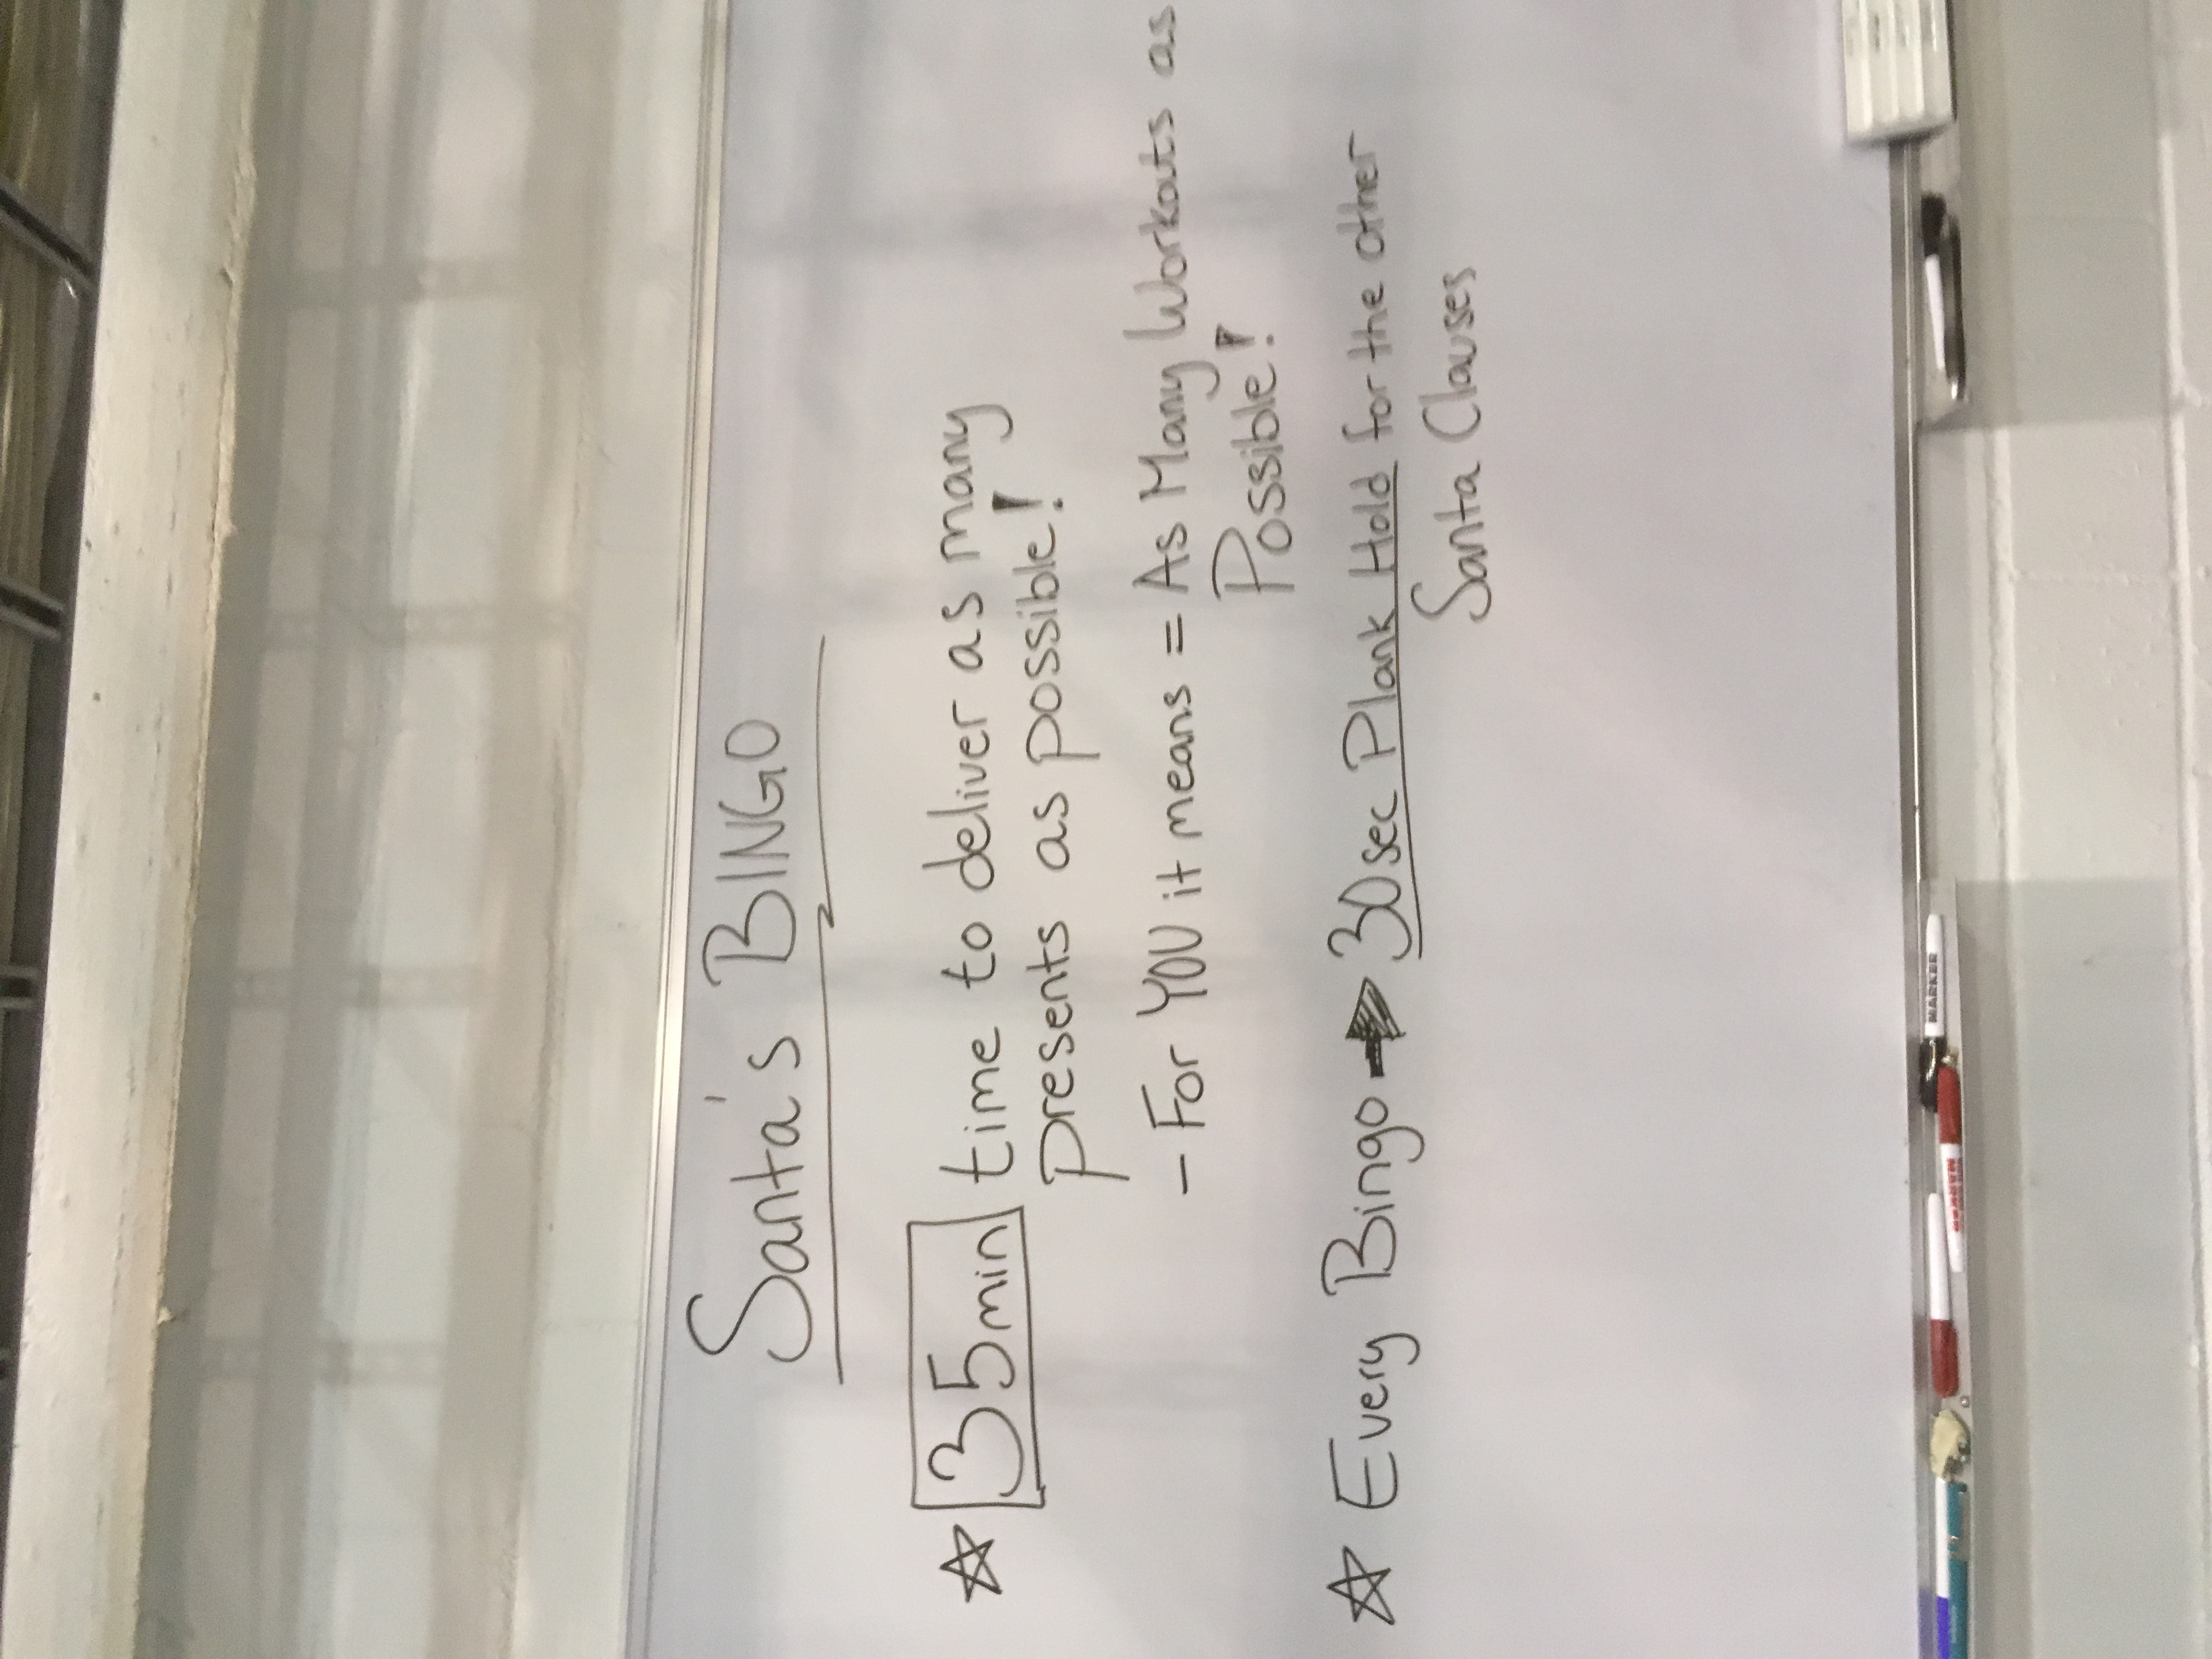 Santa's BINGO
☆ 35min time to deliver as many
presents as possible!
- For YOU it means = As Many Workouts as
Possible!
☆ Every Bingo → 30sec Plank Hold for the other
Santa Clauses
MARKER
MARKER